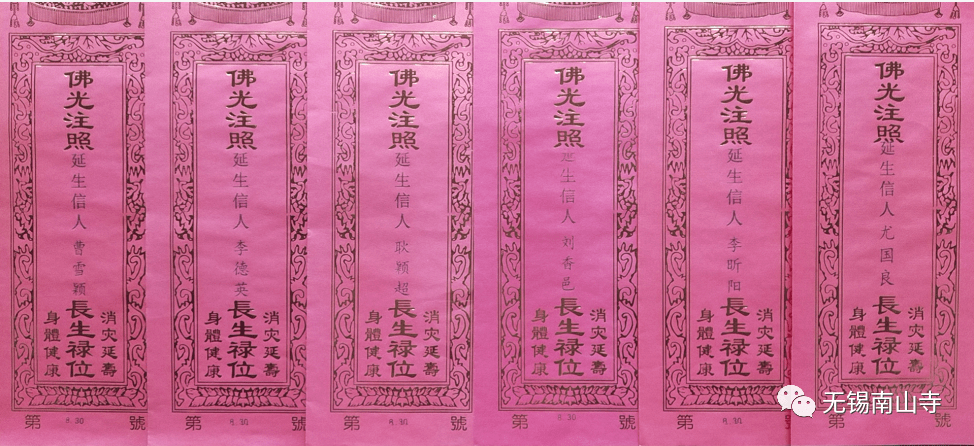 佛光注照
延生信人 曹雪颖
長生禄位
消灾延壽
身體健康
第 8.30 號
佛光注照
延生信人 李德英
長生禄位
消灾延壽
身體健康
第 8.30 號
佛光注照
延生信人 耿颖超
長生禄位
消灾延壽
身體健康
第 8.30 號
佛光注照
延生信人 刘香邑
長生禄位
消灾延壽
身體健康
第 8.30 號
佛光注照
延生信人 李昕阳
長生禄位
消灾延壽
身體健康
第 8.30 號
佛光注照
延生信人 尤国良
長生禄位
消灾延壽
身體健康
第 號
无锡南山寺